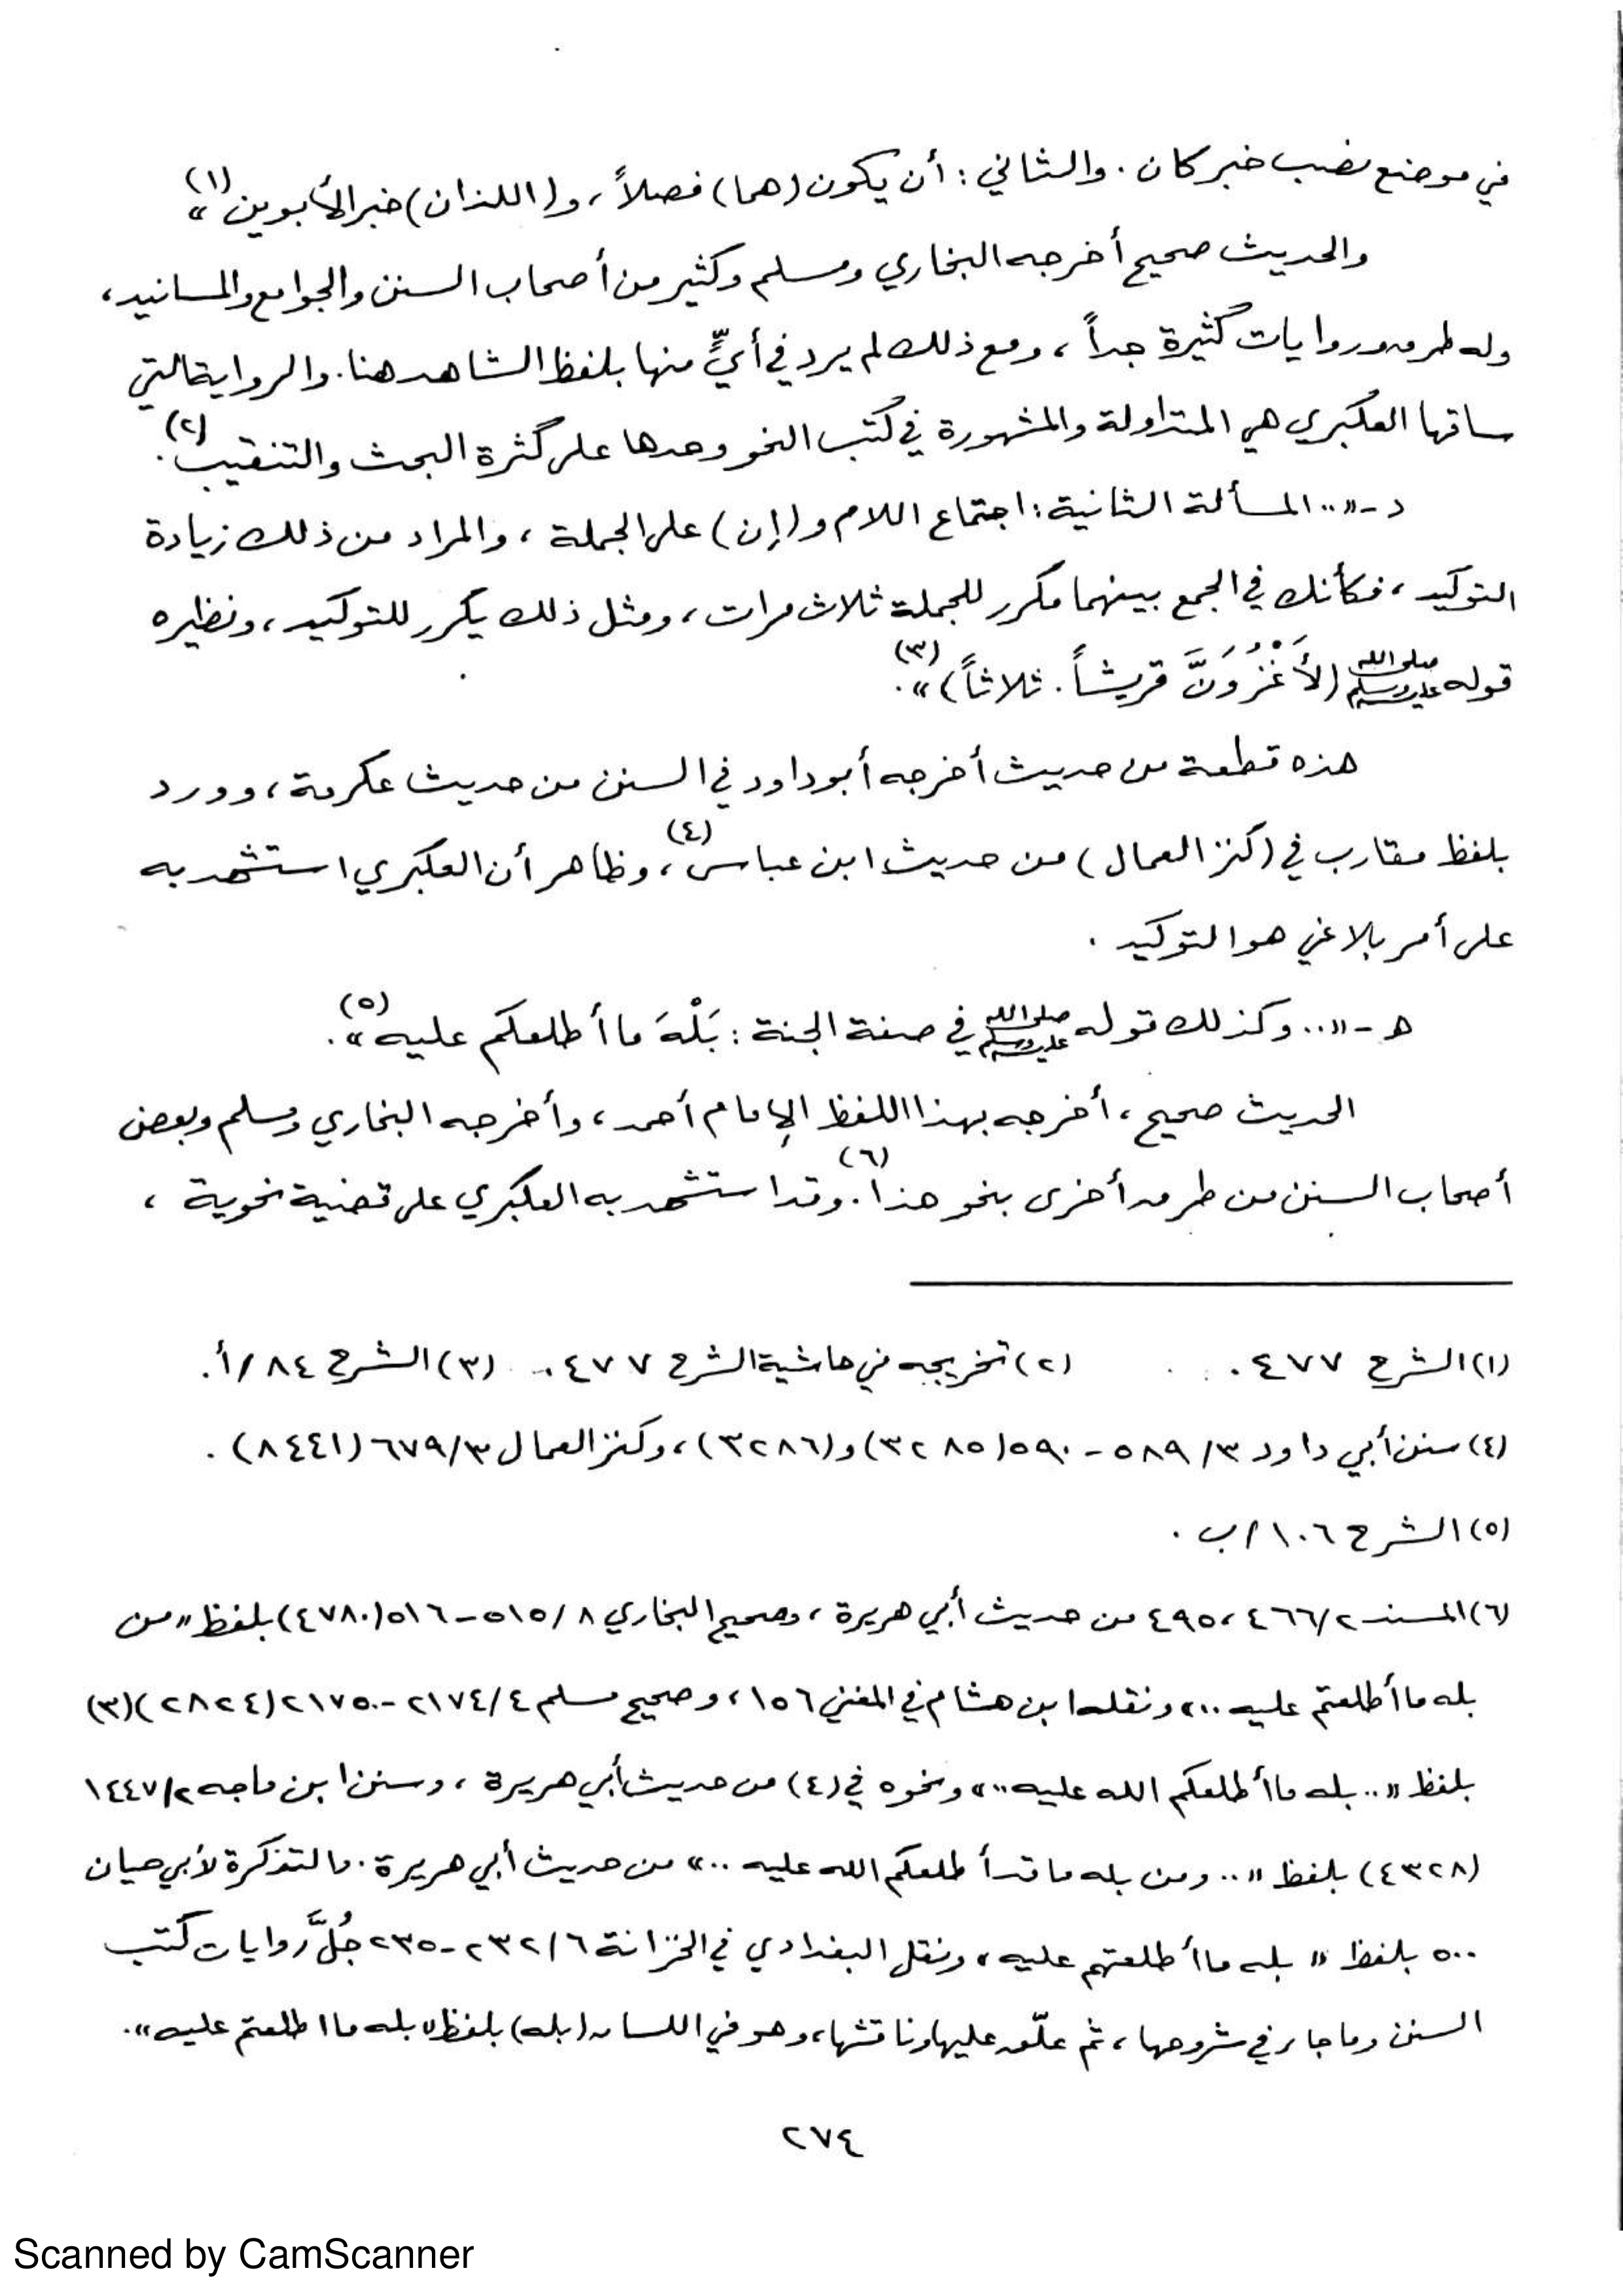 في موضع نصب خبر كان. والثاني: أن يكون (هما) فصلاً، و(اللذان) خبر الأبوين»(١)
والحديث صحيح أخرجه البخاري ومسلم وكثير من أصحاب السنن والجوامع والمسانيد،
وله طرق وروايات كثيرة جداً، ومع ذلك لم يرد في أيٍّ منها بلفظ الشاهد هنا. والرواية التي
ساقها العكبري هي المتداولة والمشهورة في كتب النحو وحدها على كثرة البحث والتنقيب(٢).
د - «.. المسألة الثانية: اجتماع اللام و(إن) على الجملة، والمراد من ذلك زيادة
التوكيد، فكأنك في الجمع بينهما مكرر للجملة ثلاث مرات، ومثل ذلك يكرر للتوكيد، ونظيره
قوله ﷺ (لأَغْزُوَنَّ قريشاً. ثلاثاً)»(٣).
هذه قطعة من حديث أخرجه أبو داود في السنن من حديث عكرمة، وورد
بلفظ مقارب في (كنز العمال) من حديث ابن عباس(٤)، وظاهر أن العكبري استشهد به
على أمر بلاغي هو التوكيد.
هـ - «.. وكذلك قوله ﷺ في صفة الجنة: بَلْهَ ما أطلعكم عليه»(٥).
الحديث صحيح، أخرجه بهذا اللفظ الإمام أحمد، وأخرجه البخاري ومسلم وبعض
أصحاب السنن من طرق أخرى بنحو هذا(٦). وقد استشهد به العكبري على قضية نحوية،
(١) الشرح ٤٧٧. (٢) تخريجه في حاشية الشرح ٤٧٧. (٣) الشرح ٨٤/أ.
(٤) سنن أبي داود ٣/ ٥٨٩ - ٥٩٠ (٣٢٨٥) و(٣٢٨٦)، وكنز العمال ٣/ ٦٧٩ (٨٤٤١).
(٥) الشرح ١٠٦/ب.
(٦) المسند ٢/ ٤٦٦، ٤٩٥ من حديث أبي هريرة، وصحيح البخاري ٨/ ٥١٥ - ٥١٦ (٤٧٨٠) بلفظ «من
بله ما أطلعتم عليه ..» ونقله ابن هشام في المغني ١٥٦، وصحيح مسلم ٤/ ٢١٧٤ - ٢١٧٥ (٢٨٢٤)(٣)
بلفظ «.. بله ما أطلعكم الله عليه ..» ونحوه في (٤) من حديث أبي هريرة، وسنن ابن ماجه ٢/ ١٤٤٧
(٤٣٢٨) بلفظ «.. ومن بله ما قد أطلعكم الله عليه ..» من حديث أبي هريرة. والتذكرة لأبي حيان
٥٠٠ بلفظ «بله ما أطلعتهم عليه» ونقل البغدادي في الخزانة ٦/ ٢٣٢ - ٢٣٥ جُلَّ روايات كتب
السنن وما جاء في شروحها، ثم علّق عليها وناقشها، وهو في اللسان (بله) بلفظ «بله ما اطلعتم عليه».
٢٧٤
Scanned by CamScanner